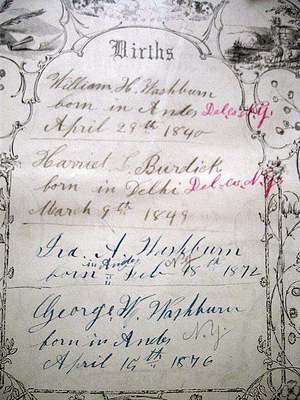 Births
William H. Washburn
born in Andes Del.co N.Y.
April 29th 1840
Harriet L. Burdick
born in Delhi Del.co. N.Y.
March 9th 1849
Ira A Washburn
in Andes N.Y.
born Feb 18th 1872
George W. Washburn
born in Andes N.Y.
April 15th 1876